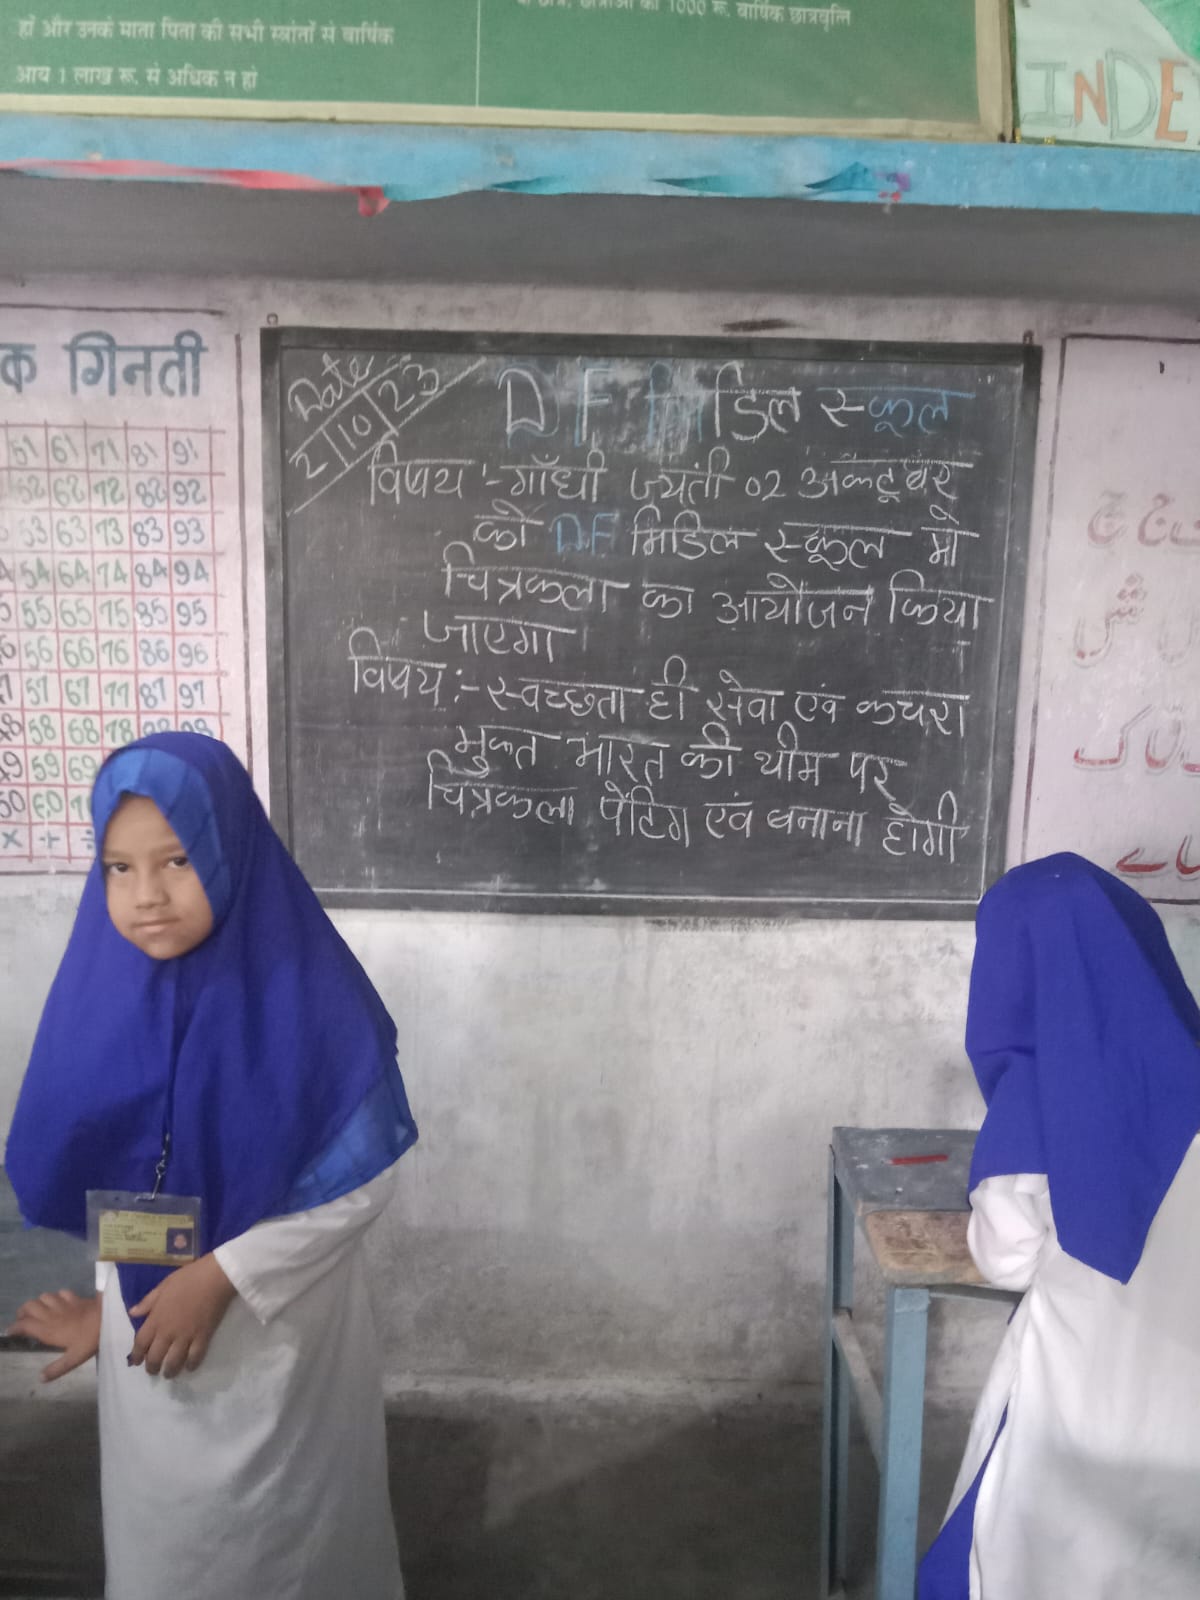 हों और उनके माता पिता की सभी स्त्रांतों से वार्षिक
आय 1 लाख रू. से अधिक न हो
1000 रू. वार्षिक छात्रवृत्ति
INDE
क गिनती
51 61 71 81 91
52 62 72 82 92
53 63 73 83 93
54 64 74 84 94
55 65 75 85 95
56 66 76 86 96
57 67 77 87 97
58 68 78 88 98
59 69
50 60
× + ÷
Date
2/10/23
DF मिडिल स्कूल
विषय :- गाँधी जयंती 02 अकटूबर
को DF मिडिल स्कूल मे
चित्रकला का आयोजन किया
जाएगा ।
विषय :- स्वच्छता ही सेवा एवं कचरा
मुक्त भारत की थीम पर
चित्रकला पेंटिग एवं बनाना होगी